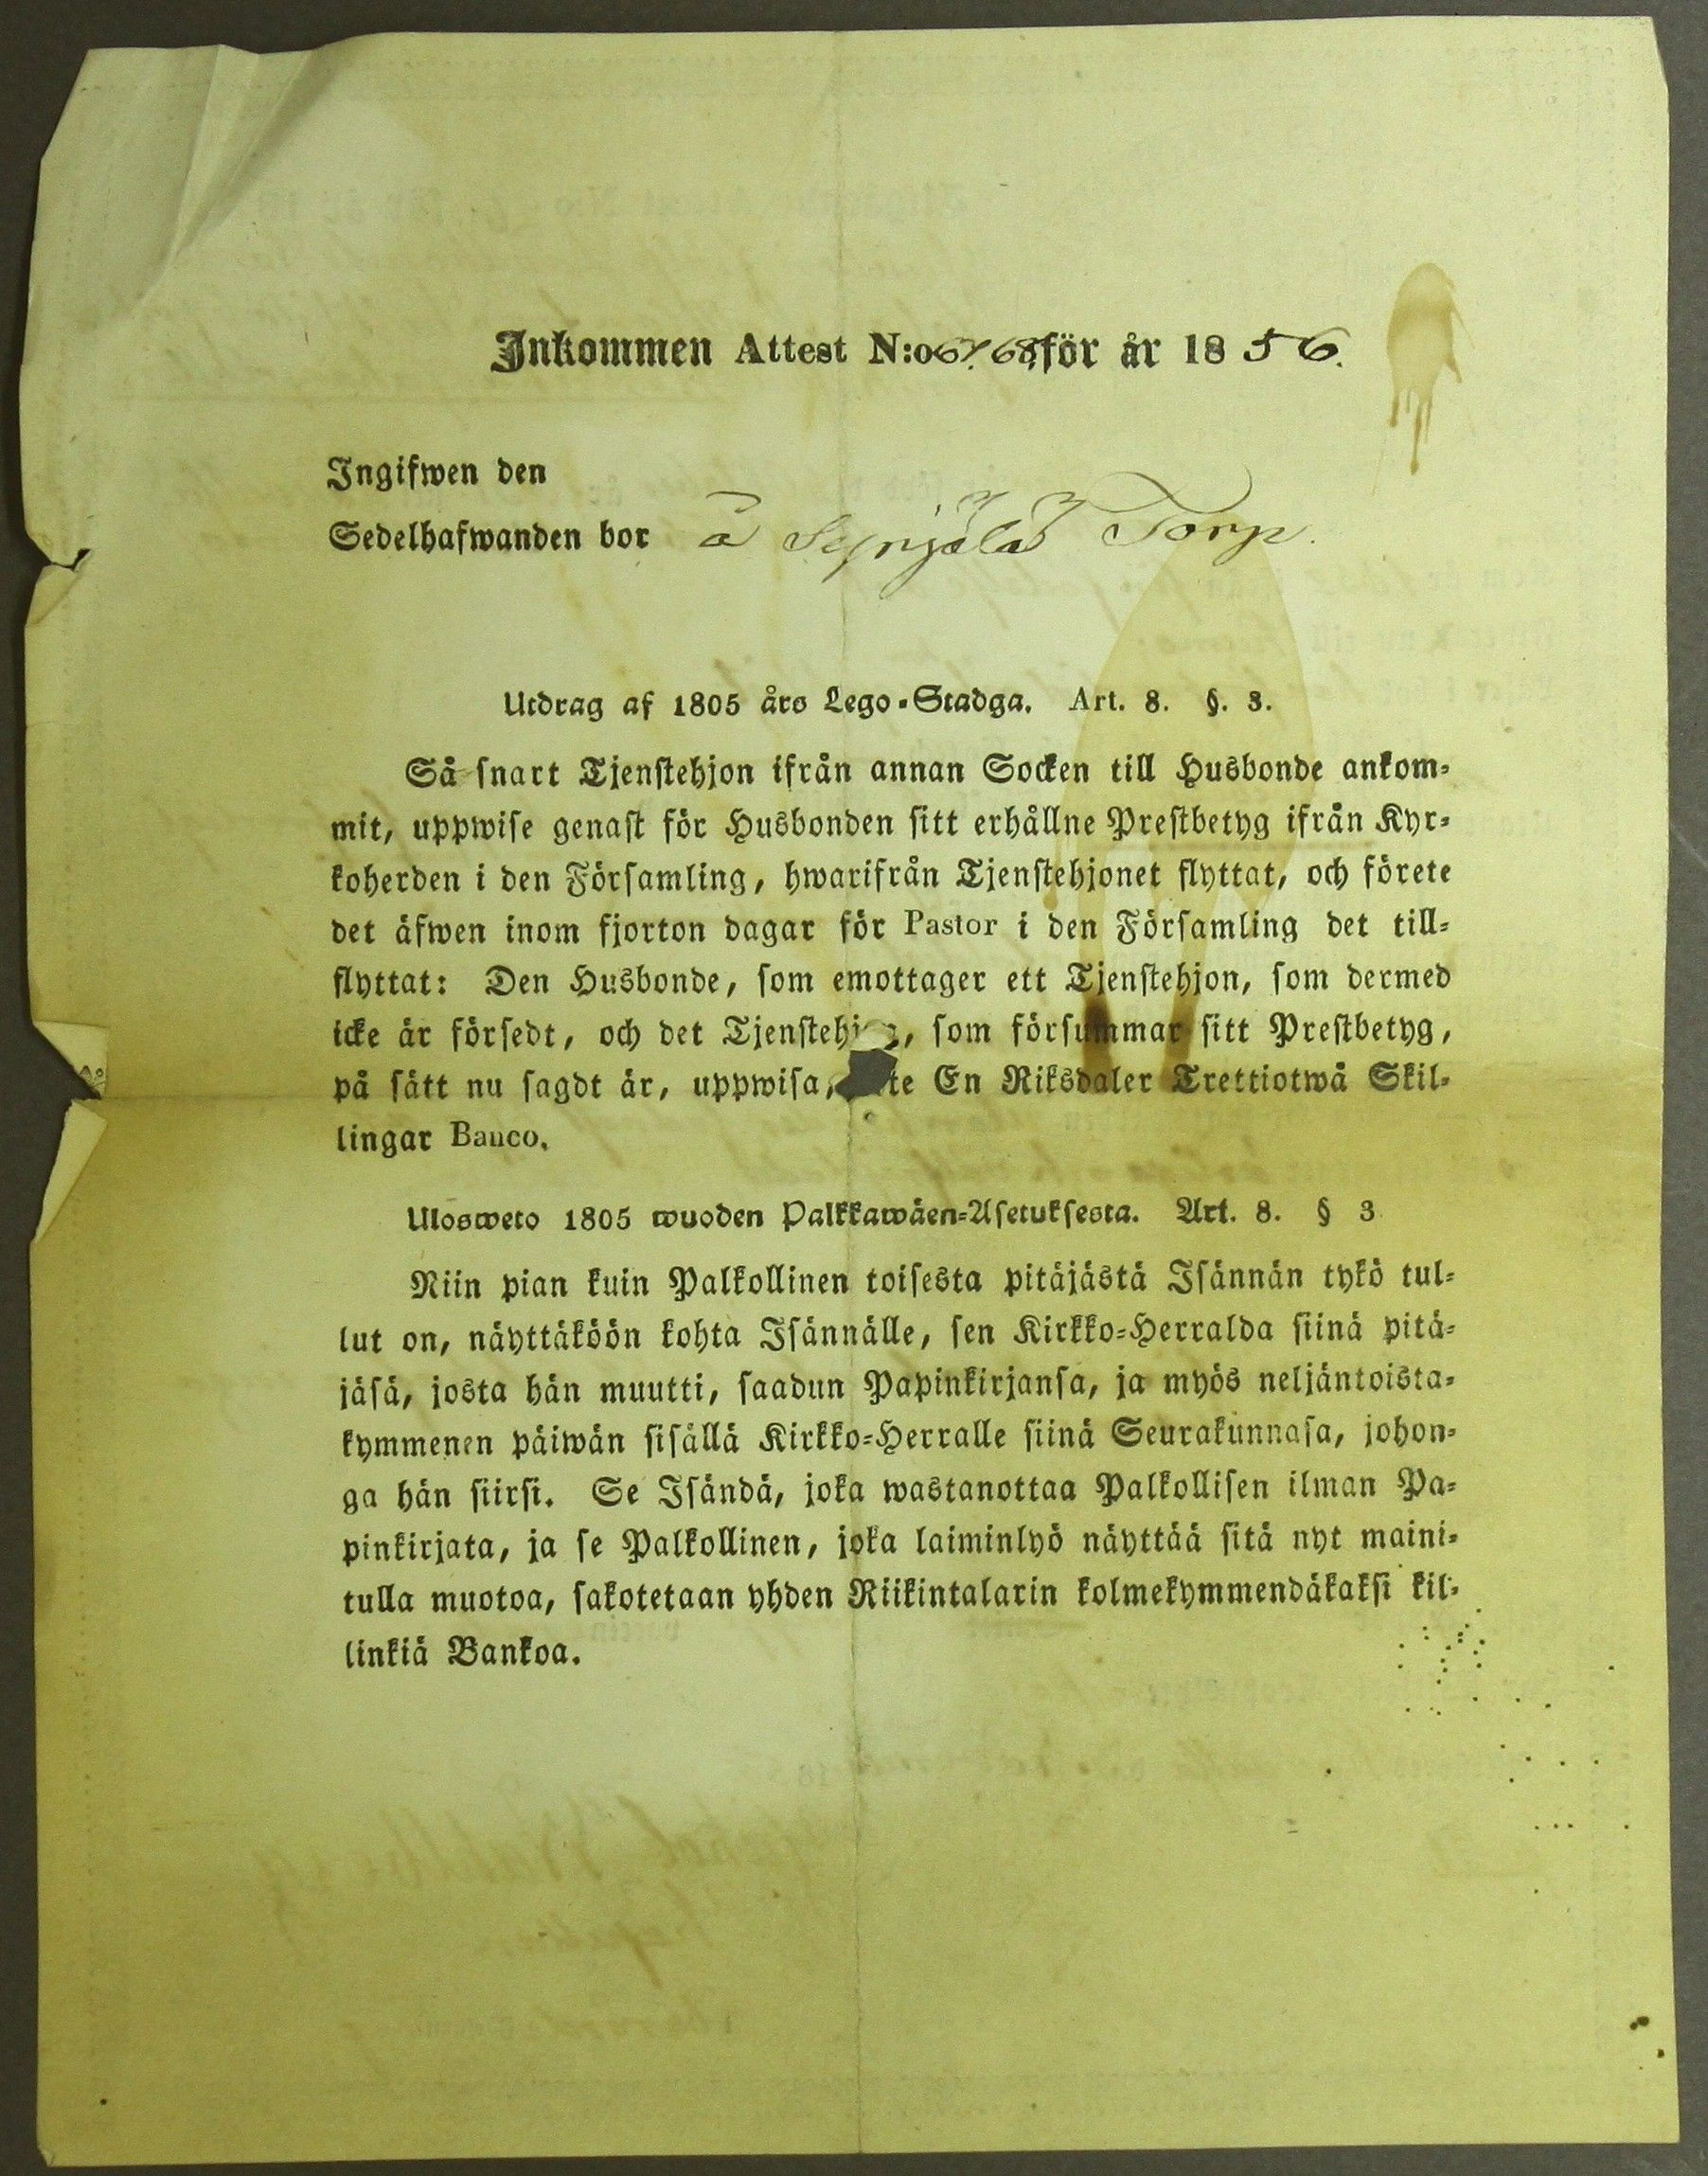 Inkommen Attest N:o 67. 68. för år 1856.
Ingifwen den
Sedelhafwanden bor å Torp.
Utdrag af 1805 års Lego-Stadga. Art. 8. §. 3.
Så snart Tjenstehjon ifrån annan Socken till Husbonde ankom-
mit, uppwise genast för Husbonden sitt erhållne Prestbetyg ifrån Kyr-
koherden i den Församling, hwarifrån Tjenstehjonet flyttat, och förete
det äfwen inom fjorton dagar för Pastor i den Församling det till-
flyttat: Den Husbonde, som emottager ett Tjenstehjon, som dermed
icke är försedt, och det Tjenstehjon, som försummar sitt Prestbetyg,
på sätt nu sagdt är, uppwisa, te En Riksdaler Trettiotwå Skil-
lingar Banco.
Ulosweto 1805 wuoden Palkkawäen-Asetuksesta. Art. 8. § 3
Niin pian kuin Palkollinen toisesta pitäjästä Isännän tykö tul-
lut on, näyttäköön kohta Isännälle, sen Kirkko-Herralda siinä pitä-
jäsä, josta hän muutti, saadun Papinkirjansa, ja myös neljäntoista-
kymmenen päiwän sisällä Kirkko-Herralle siinä Seurakunnasa, johon-
ga hän siirsi. Se Isändä, joka wastanottaa Palkollisen ilman Pa-
pinkirjata, ja se Palkollinen, joka laiminlyö näyttää sitä nyt maini-
tulla muotoa, sakotetaan yhden Riikintalarin kolmekymmendäkaksi kil-
linkiä Bankoa.